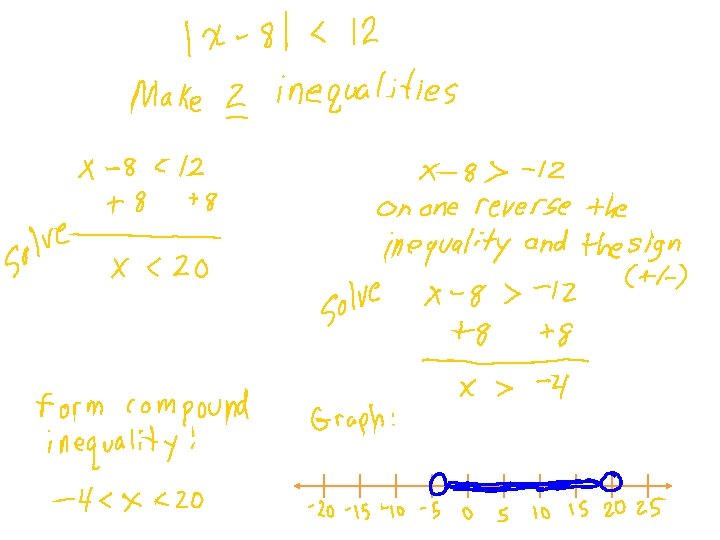 |x-8| < 12
Make 2 inequalities
x-8 < 12
+8 +8
Solve
x < 20
x-8 > -12
on one reverse the
inequality and the sign
(+/-)
Solve
x-8 > -12
+8 +8
x > -4
Form compound
inequality:
-4 < x < 20
Graph:
-20 -15 -10 -5 0 5 10 15 20 25